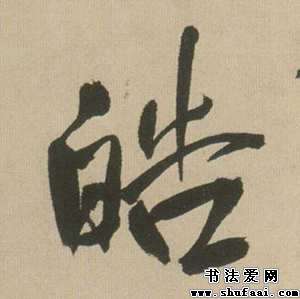 皓
书法爱网
www.shufaai.com